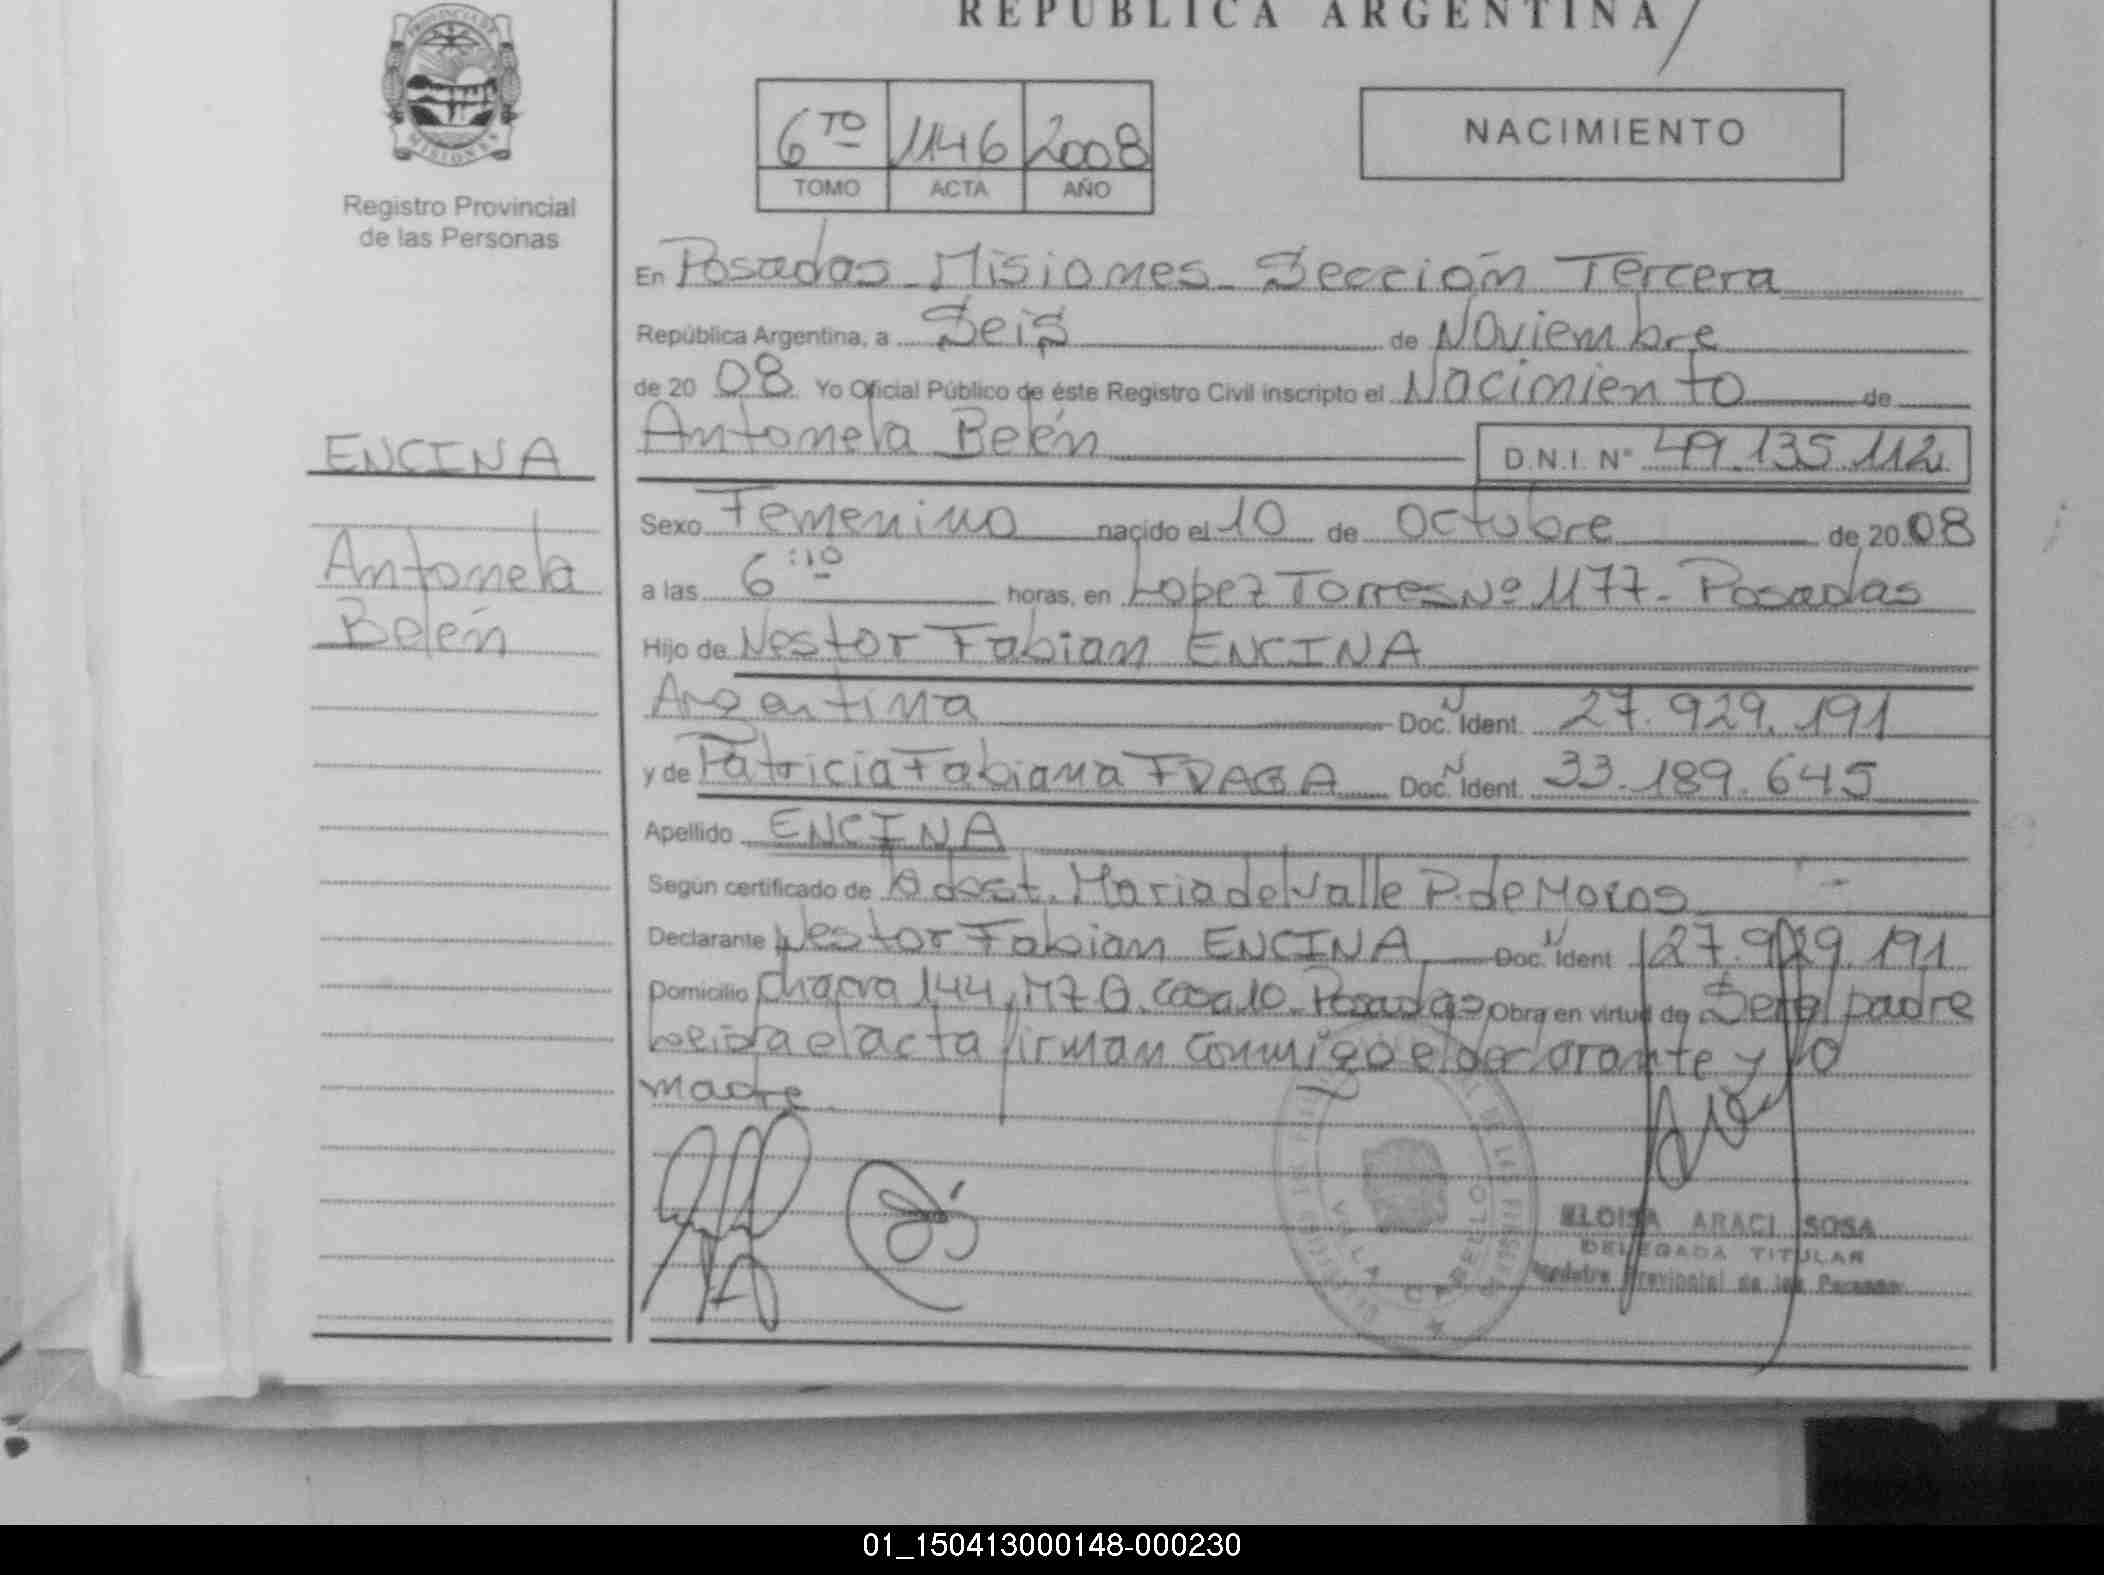 REPUBLICA ARGENTINA
PROVINCIA DE
MISIONES
Registro Provincial
de las Personas
6TO 1146 2008
TOMO ACTA AÑO
NACIMIENTO
En Posadas - Misiones - Sección Tercera
República Argentina, a Seis de Noviembre
de 2008 Yo Oficial Público de éste Registro Civil inscripto el Nacimiento de
ENCINA
Antonela Belén D.N.I. N° 49.135.112
Sexo Femenino nacido el 10 de Octubre de 2008
Antonela
Belén
a las 6:10 horas, en Lopez Torres Nº 1177 - Posadas
Hijo de Nestor Fabian ENCINA
Argentina Doc. Ident. 27.929.191
y de Patricia Fabiana Doc. Ident. 33.189.645
Apellido ENCINA
Según certificado de Obst. Maria del Valle P. de
Declarante Nestor Fabian ENCINA Doc. Ident 27.929.191
Domicilio Chacra 144, Mz G. casa 10 - Posadas Obra en virtud de Ser el padre
Leida el acta firman conmigo el declarante y la
madre.
VILLA CABELLO
ELOISA ARACI SOSA
DELEGADA TITULAR
Registro Provincial de las Personas
01_150413000148-000230